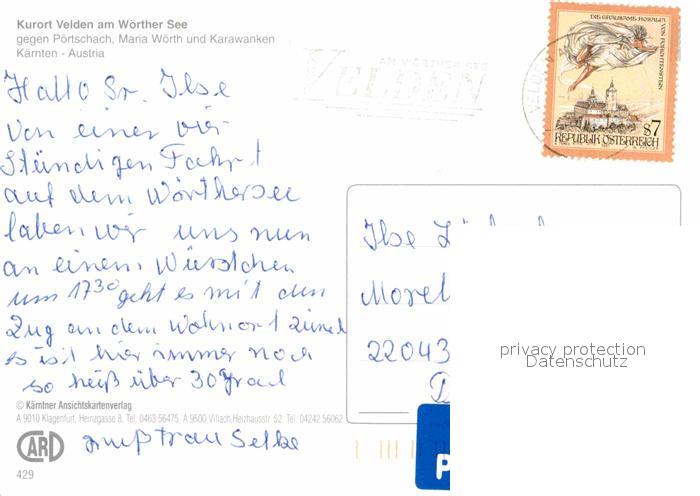 Kurort Velden am Wörther See
gegen Pörtschach, Maria Wörth und Karawanken
Kärnten - Austria
Hallo Sr. Ilse
von einer vier
Stündigen Fahrt
auf dem Wörthersee
laben wir uns nun
an einem Würstchen
um 17 30 geht es mit dem
Zug an dem Wohnort zurück
es ist hier immer noch
so heiß über 30 grad
© Kärntner Ansichtskartenverlag
A 9010 Klagenfurt, Heinzgasse 8, Tel. 0463 56475, A 9500 Villach, Heizhausstr. 52, Tel. 04242 56062
CARD
429
AM WÖRTHER SEE
VELDEN
VELDEN
DIE GRAUSAME ROSALIA
VON FORCHTENSTEIN
S7
REPUBLIK ÖSTERREICH
Ilse
Morel
22043
P
privacy protection
Datenschutz